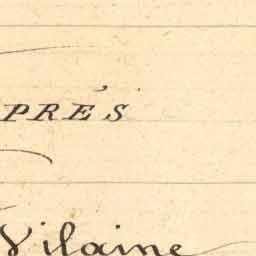 PRÉS
Vilaine